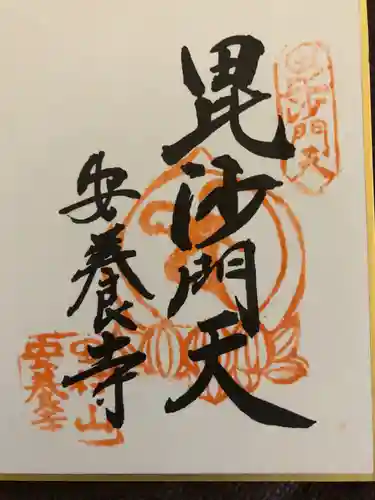 毘沙門天
毘沙門天
安養寺
安養寺